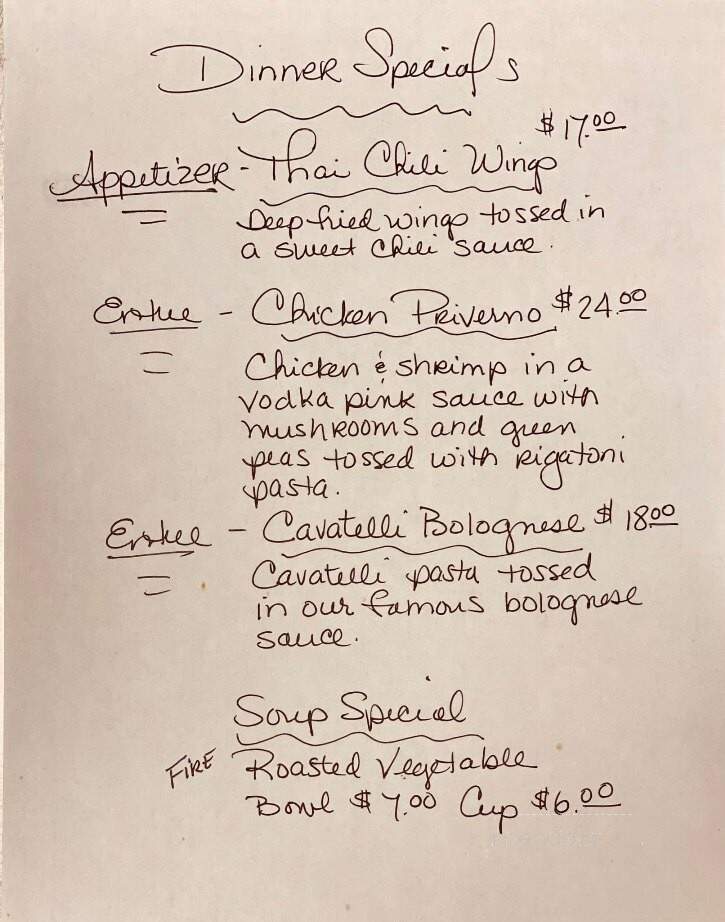 Dinner Specials
$17.00
Appetizer - Thai Chili Wings
Deep fried wings tossed in
a sweet chili sauce.
Entree - Chicken Priverno $24.00
Chicken & shrimp in a
vodka pink sauce with
mushrooms and green
peas tossed with rigatoni
pasta.
Entree - Cavatelli Bolognese $18.00
Cavatelli pasta tossed
in our famous bolognese
sauce.
Soup Special
Fire Roasted Vegetable
Bowl $7.00 Cup $6.00